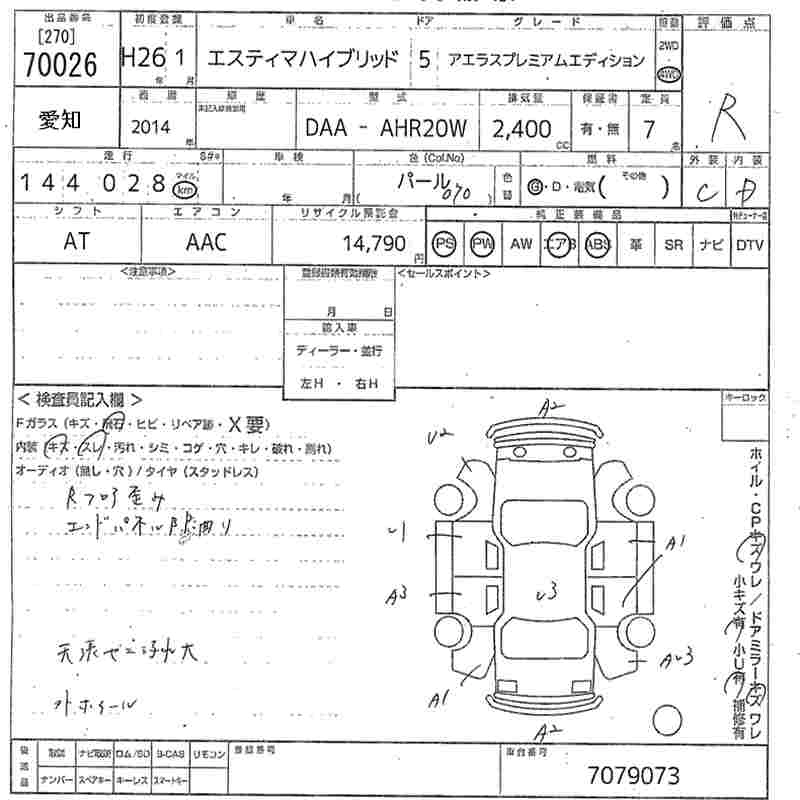 出品番号 初度登録 車名 ドア グレード 駆動 評価点
[270]
70026 H26年 1月 エスティマハイブリッド 5 アエラスプレミアムエディション 2WD 4WD R
西暦 車歴 型式 排気量 保証書 定員
愛知 2014年 DAA - AHR20W 2,400cc 有・無 7名
走行 車検 色(Col.No) 燃料 外装 内装
144028 マイル km 年 月 パール 070 色替 G・D・電気( その他 ) C D
シフト エアコン リサイクル預託金 純正装備品
AT AAC 14,790円 PS PW AW エアB ABS 革 SR ナビ DTV
<注意事項> <セールスポイント>
月 日
輸入車
ディーラー・並行
左H ・ 右H
<検査員記入欄> キーロック
Fガラス(キズ・飛石・ヒビ・リペア跡・X要)
内装(キズ・スレ・汚れ・シミ・コゲ・穴・キレ・破れ・割れ)
オーディオ(無し・穴)/タイヤ(スタッドレス)
Rフロア歪み
エンドパネル 曲り
天張 浮 大
外ホイール
A2
U2
U1
A1
A3
U3
AU3
A1
A2
ホイル・CPキズワレ/ドアミラーキズワレ
小キズ有 小U有 補修有
後送品 取説 ナビ取説 ロム/SD B-CAS リモコン 登録番号 車台番号
ナンバー スペアキー キーレス スマートキー 7079073